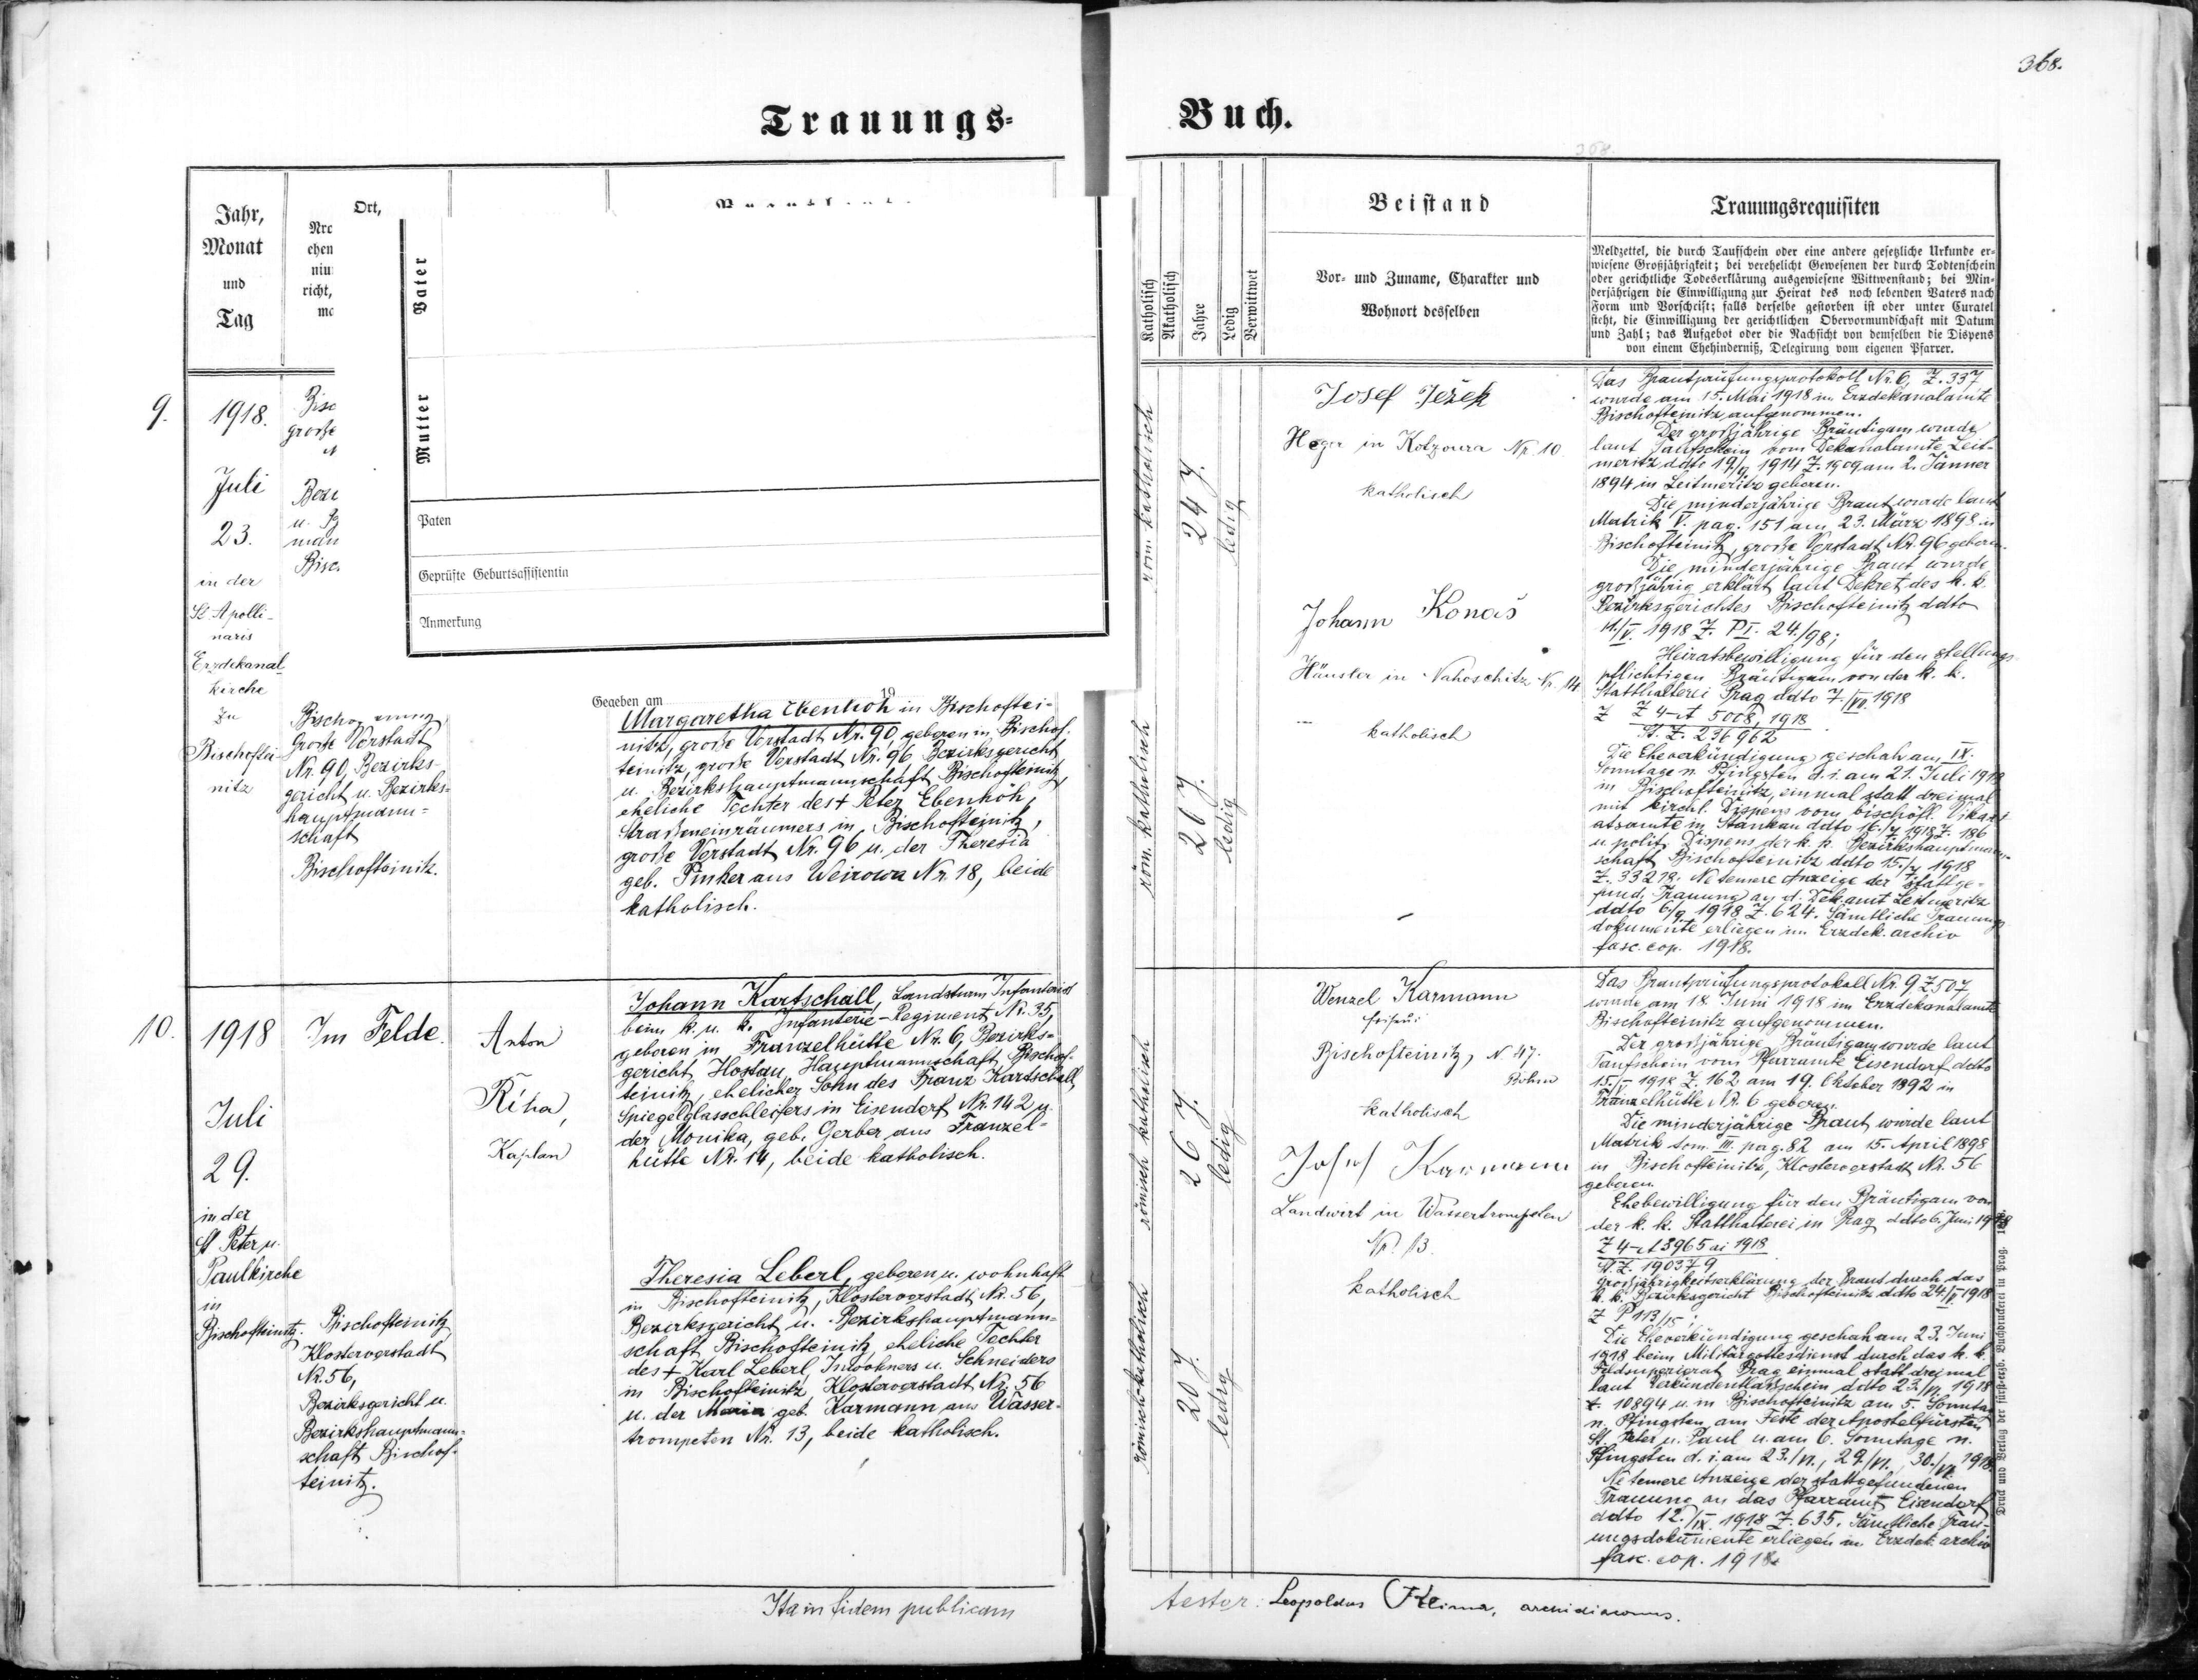 368.
Trauungs-
Buch.
368.
Jahr,
Monat
und
Tag
Ort,
Nrc
ehen
niu
richt,
mc
Vater
Mutter
Paten
Geprüfte Geburtsassistentin
Anmerkung
Gegeben am 19
Katholisch
Akatholisch
Jahre
Ledig
Verwittwet
Beistand
Vor- und Zuname, Charakter und
Wohnort desselben
Trauungsrequisiten
Meldzettel, die durch Taufschein oder eine andere gesetzliche Urkunde er-
wiesene Großjährigkeit; bei verehelicht Gewesenen der durch Todtenschein
oder gerichtliche Todeserklärung ausgewiesene Wittwenstand; bei Min-
derjährigen die Einwilligung zur Heirat des noch lebenden Vaters nach
Form und Vorschrift; falls derselbe gestorben ist oder unter Curatel
steht, die Einwilligung der gerichtlichen Obervormundschaft mit Datum
und Zahl; das Aufgebot oder die Nachsicht von demselben die Dispens
von einem Ehehinderniß, Delegirung vom eigenen Pfarrer.
9.
1918.
Juli
23.
in der
St. Apolli-
naris
Erzdekanal-
kirche
zu
Bischoftei-
nitz
Bisc
große
Bezi
u.
man
Bisc
Große Vorstadt
Nr. 90, Bezirks-
gericht u. Bezirks-
hauptmann-
schaft
Bischofteinitz.
Margaretha Ebenhöh in Bischoftei-
nitz, große Vorstadt Nr. 90, geboren in Bischof-
teinitz, große Vorstadt Nr. 96 Bezirksgericht
u. Bezirkshauptmannschaft Bischofteinitz,
eheliche Tochter des + Peter Ebenhöh,
Straßeneinräumers in Bischofteinitz,
große Vorstadt Nr. 96 u. der Theresia
geb. Pinker aus Weirowa Nr. 18, beide
katholisch.
röm. katholisch
24 J.
ledig
röm. katholisch
20 J.
ledig
Josef Ježek
Heger in Kotzoura Nr. 10
katholisch
Johann Konas
Häusler in Nahoschitz Nr. 14
katholisch
Das Brautprüfungsprotokoll Nr. 6, Z. 337
wurde am 15. Mai 1918 im Erzdekanalamte
Bischofteinitz aufgenommen.
Der großjährige Bräutigam wurde
laut Taufschein vom Dekanalamte Leit-
meritz ddto 19/ 1914 Z. 1909 am 2. Jänner
1894 in Leitmeritz geboren.
Die minderjährige Braut wurde laut
Matrik V. pag. 151 am 23. März 1898 in
Bischofteinitz, große Vorstadt Nr. 96 geboren.
Die minderjährige Braut wurde
großjährig erklärt laut Dekret des k. k.
Bezirksgerichtes Bischofteinitz ddto
11./V. 1918 Z. P I. 24./98;
Heiratsbewilligung für den stellungs-
pflichtigen Bräutigam von der k. k.
Statthalterei Prag ddto 7./VI. 1918
Z Z 4-A 5008, 1918
St. Z. 236962
Die Eheverkündigung geschah am IX.
Sonntage n. Pfingsten d. i. am 21. Juli 1918
in Bischofteinitz, einmal statt dreimal
mit kirchl. Dispens vom bischöfl. Vikari-
atsamte in Stankau ddto 16./7. 1918 Z. 186
u. polit. Dispens der k. k. Bezirkshauptmann-
schaft Bischofteinitz ddto 15./7. 1918
Z. 33218. Ne temere Anzeige der stattge-
fund. Trauung an d. Dek. amt Leitmeritz
ddto 6/9 1918 Z. 624. Sämtliche Trauungs-
dokumente erliegen im Erzdek. archiv
fasc. cop. 1918.
10.
1918
Juli
29.
in der
St Peter u.
Paulkirche
in
Bischofteinitz.
Im Felde.
Bischofteinitz
Klostervorstadt
Nr. 56,
Bezirksgericht u.
Bezirkshauptmann-
schaft Bischof-
teinitz.
Anton
Říha,
Kaplan
Johann Kartschall, Landsturm Infanterist
beim k. u. k. Infanterie-Regiment Nr. 35,
geboren in Franzelhütte Nr. 6, Bezirks-
gericht Hostau, Hauptmannschaft Bischof-
teinitz, ehelicher Sohn des Franz Kartschall,
Spiegelglasschleifers in Eisendorf Nr. 142 u.
der Monika, geb. Gerber aus Franzel-
hütte Nr. 14, beide katholisch.
Theresia Leberl, geboren u. wohnhaft
in Bischofteinitz, Klostervorstadt Nr. 56,
Bezirksgericht u. Bezirkshauptmann-
schaft Bischofteinitz, eheliche Tochter
des + Karl Leberl, Inwohners u. Schneiders
in Bischofteinitz, Klostervorstadt Nr. 56
u. der Maria geb. Karmann aus Wasser-
trompeten Nr. 13, beide katholisch.
römisch katholisch
26 J.
ledig
römisch katholisch
20 J.
ledig
Wenzel Karmann
friseur
Bischofteinitz, N. 47.
Böhm
katholisch
Josef Karmann
Landwirt in Wassertrompeten
Nr. 13.
katholisch
Das Brautprüfungsprotokoll Nr. 9 Z 507
wurde am 18. Juni 1918 im Erzdekanalamte
Bischofteinitz aufgenommen.
Der großjährige Bräutigam wurde laut
Taufschein vom Pfarramte Eisendorf ddto
15./V. 1918 Z. 162 am 19. Oktober 1892 in
Franzelhütte Nr. 6 geboren.
Die minderjährige Braut wurde laut
Matrik tom. III. pag. 82 am 15. April 1898
in Bischofteinitz, Klostervorstadt Nr. 56
geboren.
Ehebewilligung für den Bräutigam von
der k. k. Statthalterei in Prag ddto 6. Juni 1918
Z 4-A 3965 ai 1918
St. Z. 190379
Großjährigkeitserklärung der Braut durch das
k. k. Bezirksgericht Bischofteinitz ddto 24./V. 1918
Z P 113/15;
Die Eheverkündigung geschah am 23. Juni
1918 beim Militärgottesdienst durch das k. k.
Feldsuperiorat Prag einmal statt dreimal
laut Verkündschein ddto 23./VI. 1918
Z. 10894 u. in Bischofteinitz am 5. Sonntag
n. Pfingsten, am Feste der Apostelfürsten
St. Peter u. Paul u. am 6. Sonntage n.
Pfingsten d. i. am 23./VI., 29./VI., 30./VI. 1918.
Ne temere Anzeige der stattgefundenen
Trauung an das Pfarramt Eisendorf
ddto 12./IX. 1918 Z. 635. Sämtliche Trau-
ungsdokumente erliegen im Erzdek. archiv
fasc. cop. 1918.
Druck und Verlag der fürst-erzb. Buchdruckerei in Prag.
Ita in fidem publicam
testor: Leopoldus Klima, archidiaconus.